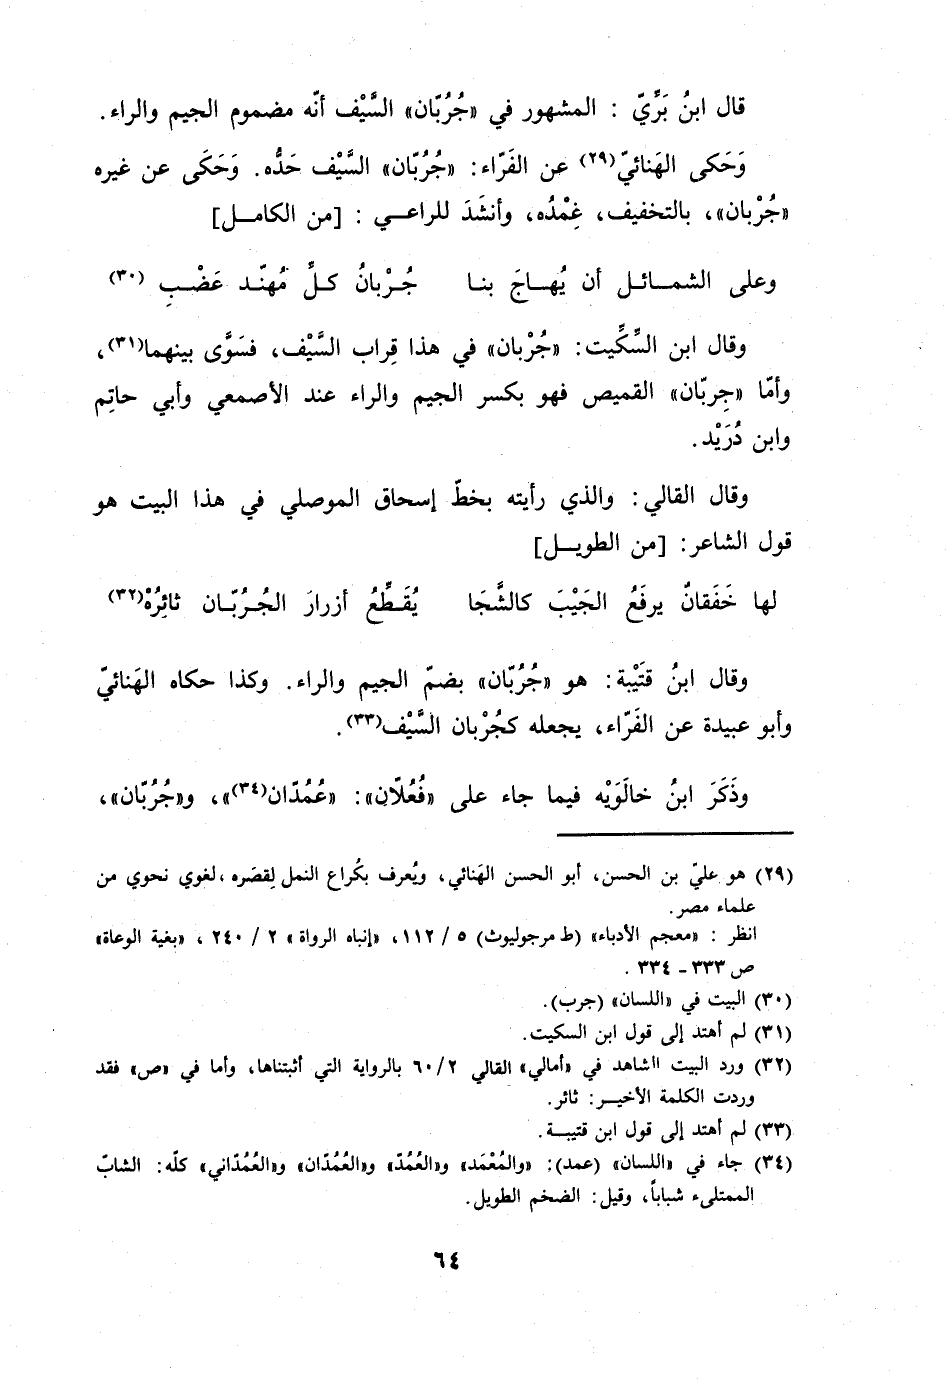 قال ابنُ بَرِّيّ : المشهور في «جُرُبّان» السَّيْف أنّه مضموم الجيم والراء.
وَحَكى الهَنائيّ(٢٩) عن الفَرّاء: «جُرُبّان» السَّيْف حَدُّه. وَحَكَى عن غيره
«جُرْبان»، بالتخفيف، غِمْدُه، وأنشَدَ للراعـي : [من الكامـل]
وعلى الشمـائـل أن يُهـاجَ بنـا جُـرْبانُ كـلِّ مُهنّـد عَضْـبِ (٣٠)
وقال ابن السِّكِّيت: «جُرْبان» في هذا قِراب السَّيْف، فسَوَّى بينهما(٣١)،
وأمّا «جِرِبّان» القميص فهو بكسر الجيم والراء عند الأصمعي وأبي حاتِم
وابن دُرَيْد.
وقال القالي: والذي رأيته بخطّ إسحاق الموصلي في هذا البيت هو
قول الشاعر: [من الطويـل]
لها خَفَقانٌ يرفَعُ الجَيْبَ كالشَّجَا يُقَـطِّعُ أزرارَ الجُـرُبّـان ثائِرُهْ(٣٢)
وقال ابنُ قتَيْبة: هو «جُرُبّان» بضمّ الجيم والراء. وكذا حكاه الهَنائيّ
وأبو عبيدة عن الفَرّاء، يجعله كجُرْبان السَّيْف(٣٣).
وذَكَرَ ابنُ خالَوَيْه فيما جاء على «فُعُلاّن»: «عُمُدّان(٣٤)»، و«جُرُبّان»،
(٢٩) هو عليّ بن الحسن، أبو الحسن الهَنائي، ويُعرف بكُراع النمل لِقصَره ،لغوي نحوي من
علماء مصر.
انظر : «معجم الأدباء» (ط مرجوليوث) ٥ / ١١٢، «إنباه الرواة» ٢ / ٢٤٠ ، «بغية الوعاة»
ص ٣٣٣ - ٣٣٤ .
(٣٠) البيت في «اللسان» (جرب).
(٣١) لم أهتد إلى قول ابن السكيت.
(٣٢) ورد البيت الشاهد في «أمالي» القالي ٦٠/٢ بالرواية التي أثبتناها، وأما في «ص» فقد
وردت الكلمة الأخيـر: ثائر.
(٣٣) لم أهتد إلى قول ابن قتيبـة.
(٣٤) جاء في «اللسان» (عمد): «والمُعْمَد» و«العُمُدّ» و«العُمُدّان» و«العُمُدّاني» كلّه: الشابّ
الممتلىء شباباً، وقيل: الضخم الطويل.
٦٤